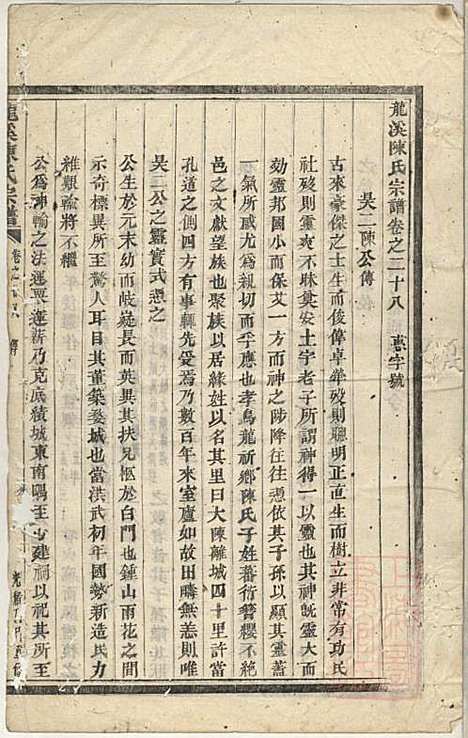 龍溪陳氏宗譜卷之二十八 惠字號
吴二陳公傳
古來豪傑之士生而俊偉卓犖歿則聰明正直生而樹立非常有功民
社歿則靈爽不昧奠安土宇老子所謂神得一以靈也其神既靈大而
効靈邦國小而保艾一方而神之陟降往往憑依其子孫以顯其靈蓋
一氣所感尤為親切而孚應也孝烏龍祈鄉陳氏子姓蕃衍簪纓不絕
邑之文獻望族也聚族以居緣姓以名其里曰大陳離城四十里許當
孔道之側四方有事輒先受焉乃數百年來室廬如故田疇無恙則唯
吴二公之靈實式憑之
公生於元末幼而岐嶷長而英異其扶兄柩於白門也鍾山雨花之間
示奇標異所至驚人耳目其董築婺城也當洪武初年國勢新造民力
維艱輸將不繼
公為神輸之法運甓運薪乃克底績城東南隅至今建祠以祀其所至
龍溪陳氏宗譜
卷之二十八 傳